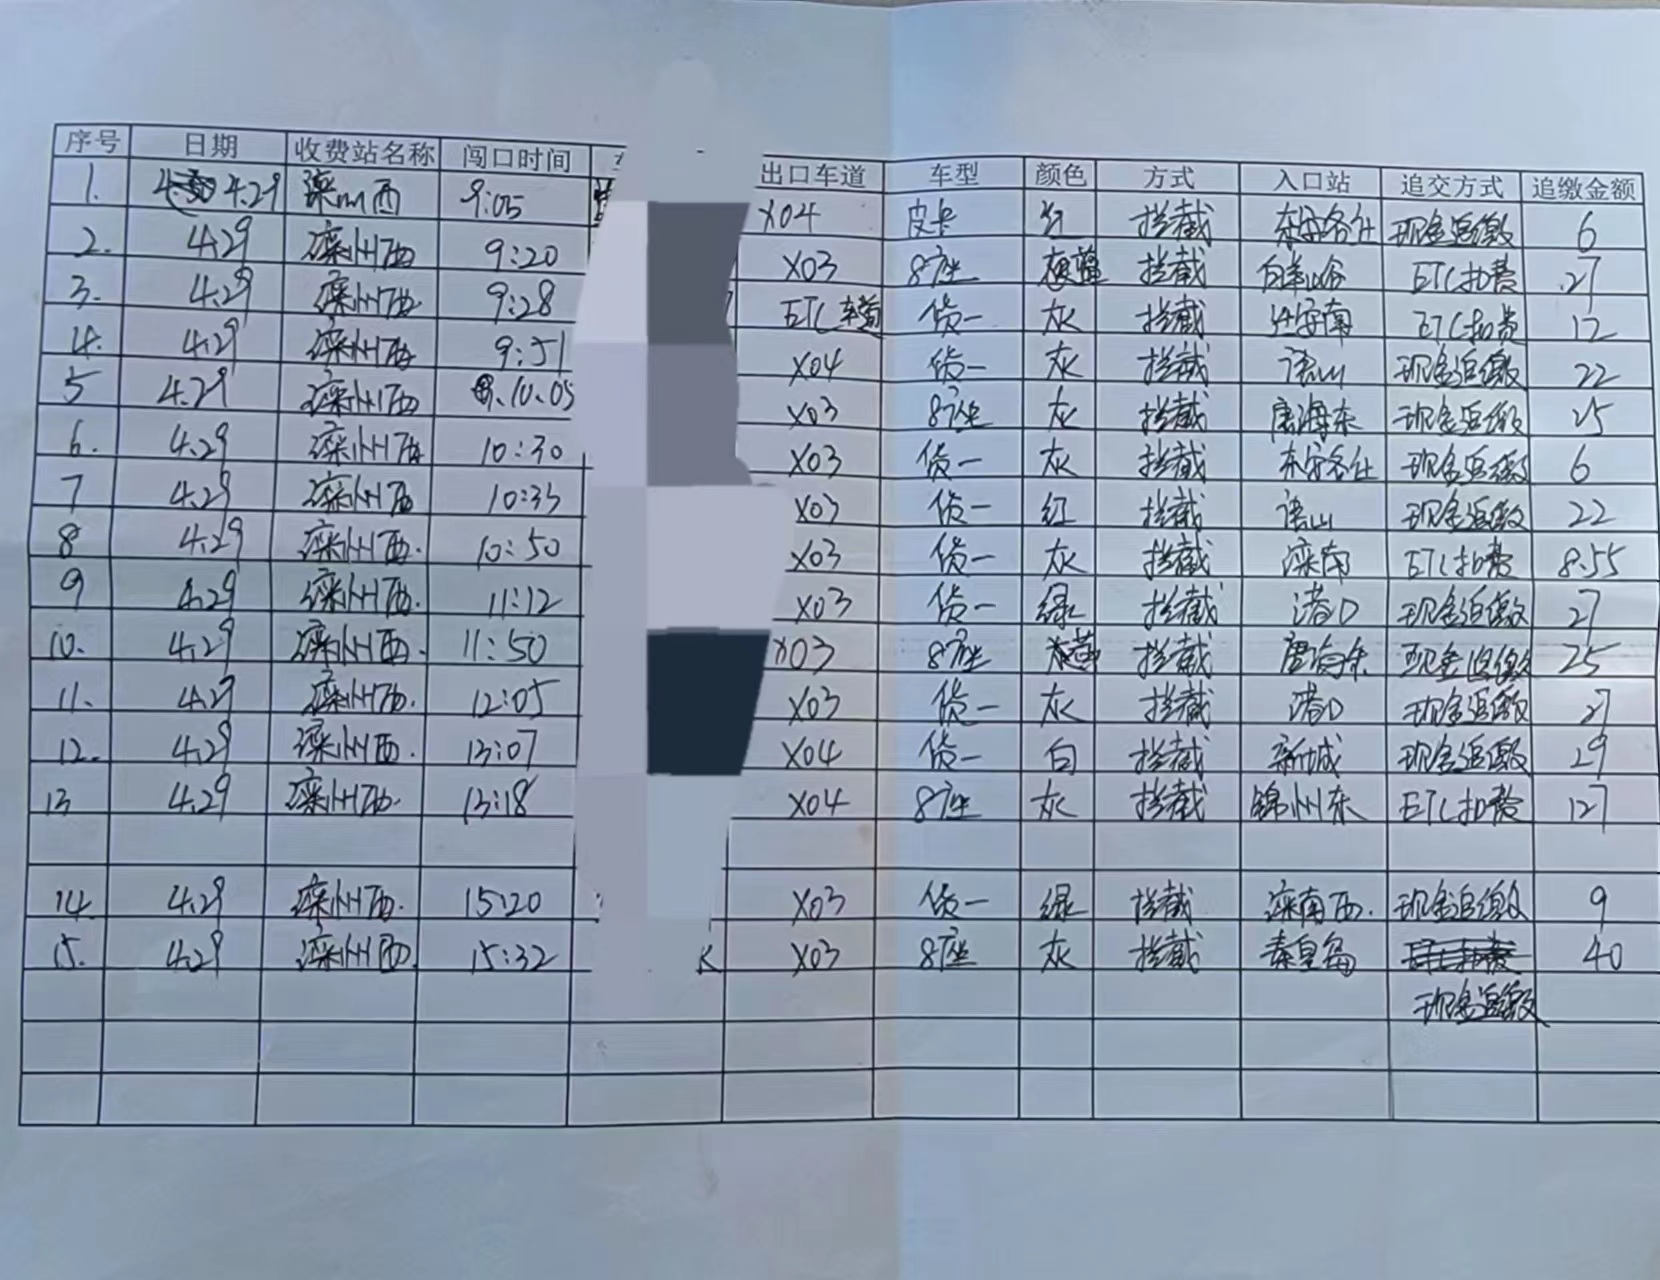 序号 日期 收费站名称 闯口时间 出口车道 车型 颜色 方式 入口站 追交方式 追缴金额
1. 4.29 滦州西 9:05 X04 皮卡 拦截 东安各庄 现金追缴 6
2. 4.29 滦州西 9:20 X03 8座 拦截 白羊峪 ETC扣费 27
3. 4.29 滦州西 9:28 ETC车道 货一 灰 拦截 迁安南 ETC扣费 12
4. 4.29 滦州西 9:51 X04 货一 灰 拦截 现金追缴 22
5 4.29 滦州西 10.05 X03 8座 灰 拦截 唐海东 现金追缴 25
6. 4.29 滦州西 10:30 X03 货一 灰 拦截 东安各庄 现金追缴 6
7 4.29 滦州西 10:35 X03 货一 红 拦截 现金追缴 22
8 4.29 滦州西. 10:50 X03 货一 灰 拦截 滦南 ETC扣费 8.55
9 4.29 滦州西. 11:12 X03 货一 绿 拦截 现金追缴 27
10. 4.29 滦州西. 11:50 X03 8座 拦截 唐海东 现金追缴 25
11. 4.29 滦州西. 12:05 X03 货一 灰 拦截 现金追缴 27
12. 4.29 滦州西. 13:07 X04 货一 白 拦截 新城 现金追缴 29
13 4.29 滦州西. 13:18 X04 8座 灰 拦截 锦州东 ETC扣费 127
14. 4.29 滦州西. 15:20 X03 货一 绿 拦截 滦南西. 现金追缴 9
15. 4.29 滦州西. 15:32 K X03 8座 灰 拦截 秦皇岛 40
现金追缴